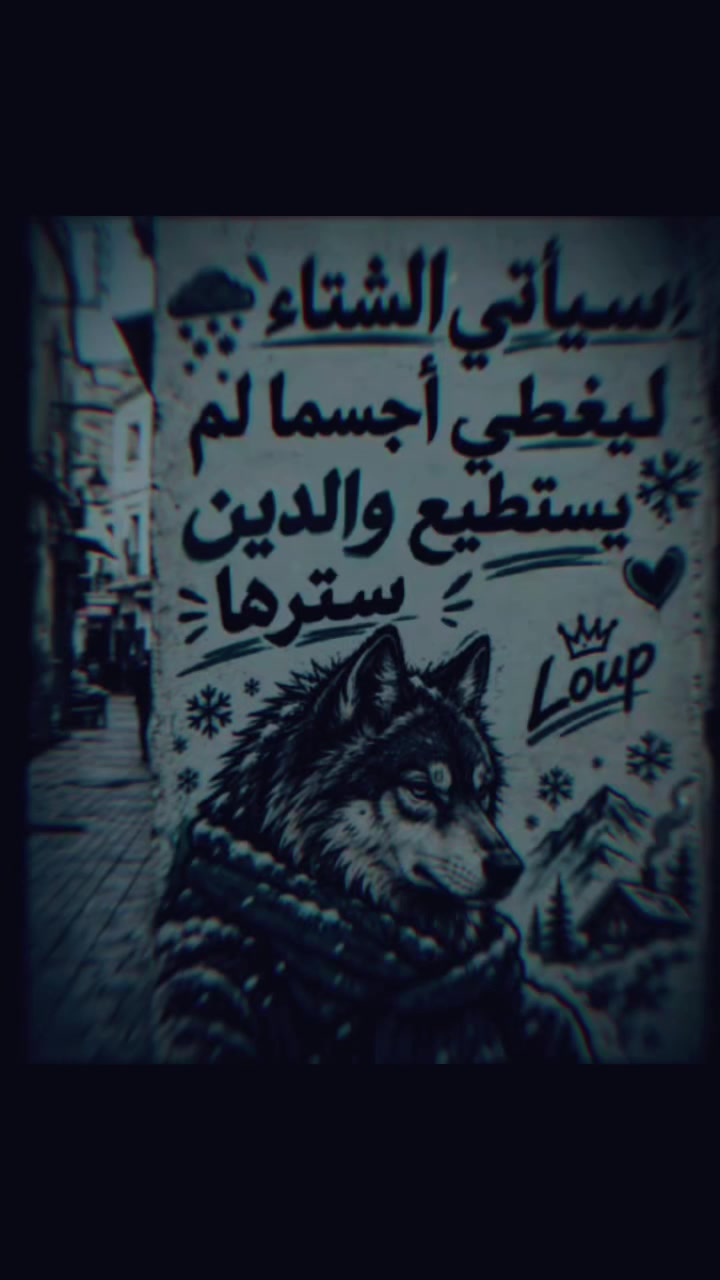 سيأتي الشتاء
ليغطي أجسما لم
يستطيع والدين
سترها
Loup